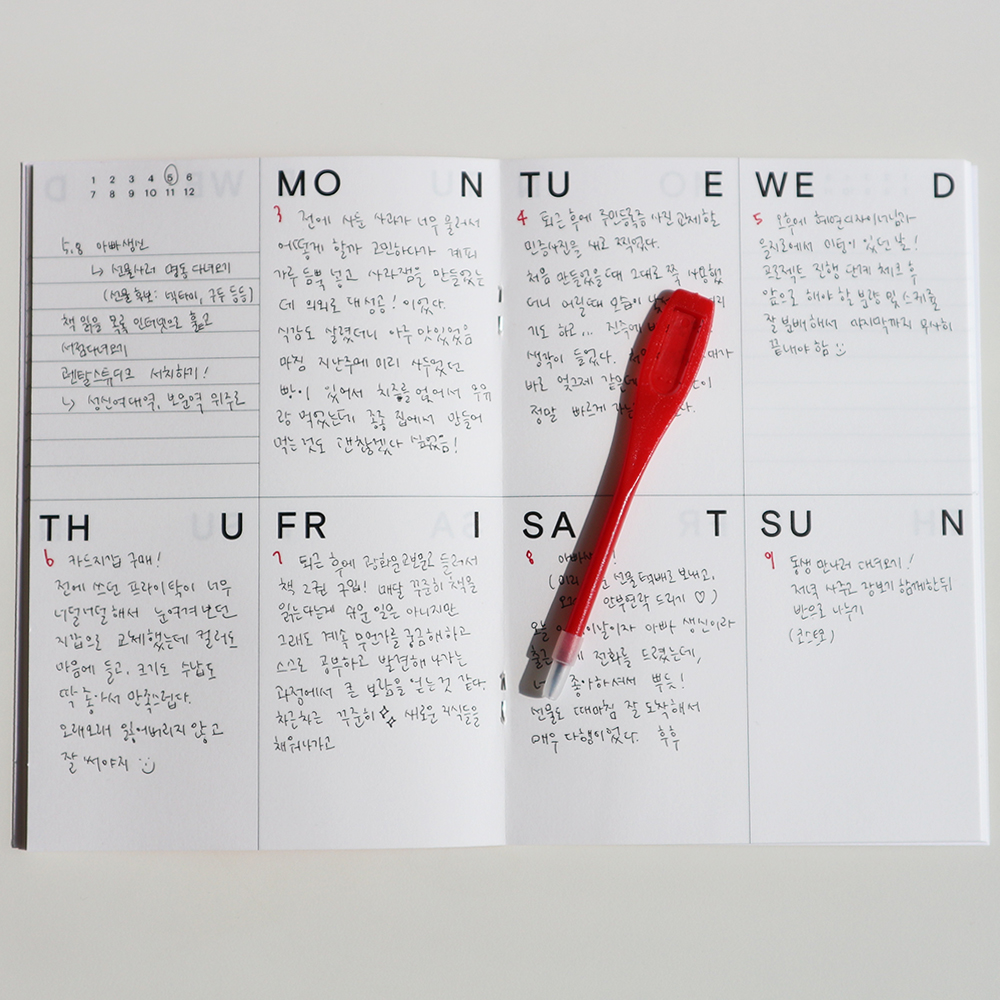 1 2 3 4 5 6
7 8 9 10 11 12
5.8 아빠생신
↳ 선물사러 명동 다녀오기
(선물후보: 넥타이, 구두 등등)
책 읽을 목록 인터넷으로 훑고
서점다녀오기
렌탈스튜디오 서치하기!
↳ 성신여대역, 보문역 위주로
MON
3 전에 사둔 사과가 너무 물러서
어떻게 할까 고민하다가 계피
가루 듬뿍 넣고 사과잼을 만들었는
데 의외로 대성공! 이었다.
식감도 살렸더니 아주 맛있었음
마침 지난주에 미리 사두었던
빵이 있어서 치즈를 얹어서 우유
랑 먹었는데 종종 집에서 만들어
먹는 것도 괜찮겠다 싶었음!
TUE
4 퇴근 후에 주민등록증 사진 교체할
민증사진을 새로 찍었다.
처음 만들었을때 그대로 쭉 사용했
더니 어릴때 모습이
기도 하고... 진즉에
생각이 들었다.
바로 엊그제 같은데
정말 빠르게
WED
5 오후에 혜연디자이너님과
을지로에서 미팅이 있던 날!
프로젝트 진행 단계 체크 후
앞으로 해야 할 분량 및 스케줄
잘 분배해서 마지막까지 무사히
끝내야 함
THU
6 카드지갑 구매!
전에 쓰던 프라이탁이 너무
너덜너덜해서 눈여겨보던
지갑으로 교체했는데 컬러도
마음에 들고, 크기도 수납도
딱 좋아서 만족스럽다.
오래오래 잃어버리지 않고
잘 써야지 :)
FRI
7 퇴근 후에 광화문교보문고 들러서
책 2권 구입! 매달 꾸준히 책을
읽는다는게 쉬운 일은 아니지만
그래도 계속 무언가를 궁금해하고
스스로 공부하고 발견해 나가는
과정에서 큰 보람을 얻는 것 같다.
차근차근 꾸준히 새로운 지식들을
채워나가고
SAT
8 아빠 !
(미리 선물 택배로 보내고,
안부연락 드리기 ♡)
오늘 어버이날이자 아빠 생신이라
전화를 드렸는데,
좋아하셔서 뿌듯!
선물도 때마침 잘 도착해서
매우 다행이었다. 후후
SUN
9 동생 만나러 다녀오기!
저녁 사주고 장보기 함께한뒤
반으로 나누기
(코스트코)